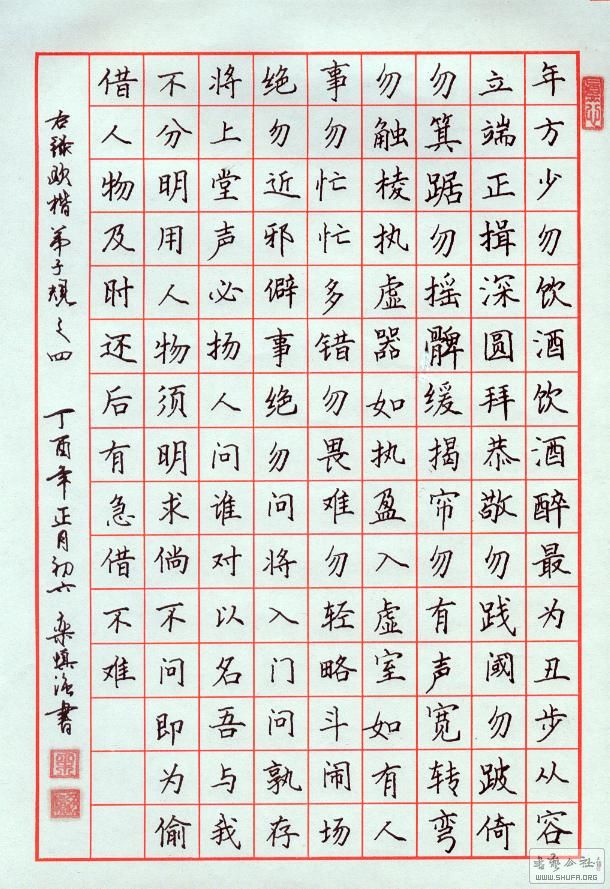 年方少勿饮酒饮酒醉最为丑步从容
立端正揖深圆拜恭敬勿践阈勿跛倚
勿箕踞勿摇髀缓揭帘勿有声宽转弯
勿触棱执虚器如执盈入虚室如有人
事勿忙忙多错勿畏难勿轻略斗闹场
绝勿近邪僻事绝勿问将入门问孰存
将上堂声必扬人问谁对以名吾与我
不分明用人物须明求倘不问即为偷
借人物及时还后有急借不难
右录欧楷弟子規之四 丁酉年正月初六 書
书艺公社
WWW.SHUFA.ORG